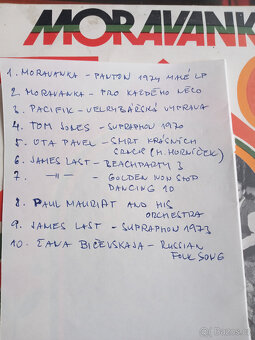 MORAVANK
1. MORAVANKA - PANTON 1974 MALÉ LP
2. MORAVANKA - PRO KAŽDÉHO NĚCO
3. PACIFIK - VELRYBÁŘSKÁ VÝPRAVA
4. TOM JONES - SUPRAPHON 1970
5. OTA PAVEL - SMRT KRÁSNÝCH
SRNCŮ (M. HORNÍČEK)
6. JAMES LAST - BEACHPARTY 3
7. -||- - GOLDEN NON STOP
DANCING 10
8. PAUL MAURIAT AND HIS
ORCHESTRA
9. JAMES LAST - SUPRAPHON 1973
10. ŽANA BIČEVSKAJA - RUSSIAN
FOLK SONG